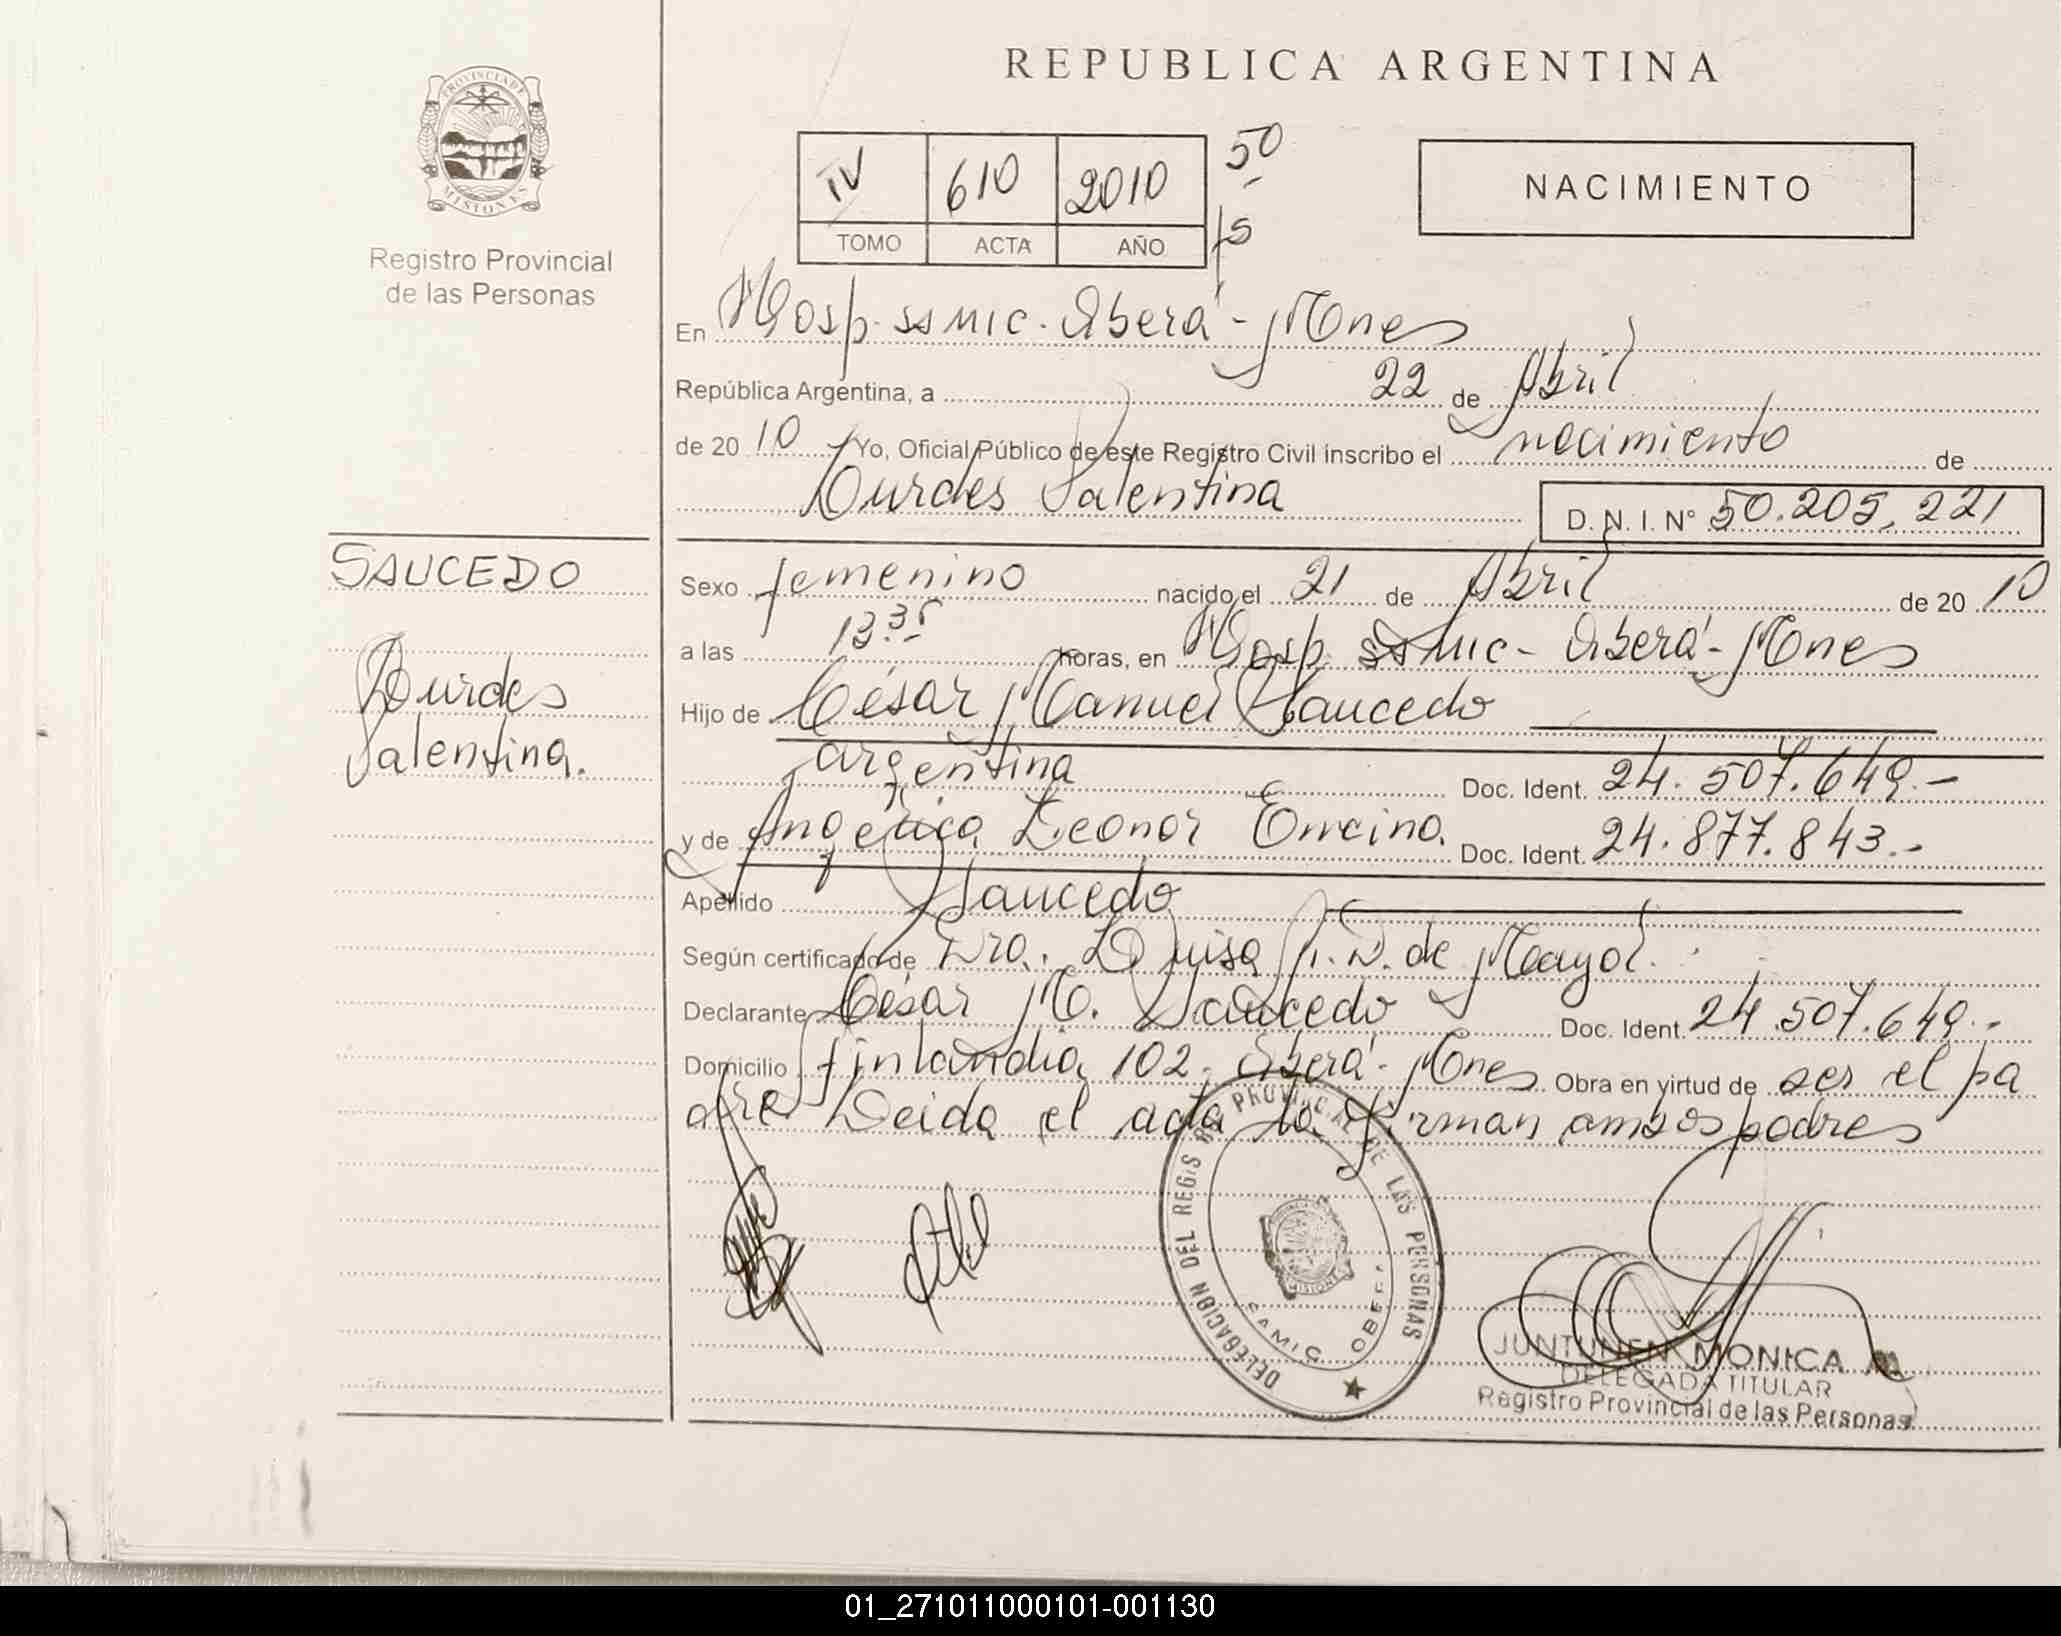 REPUBLICA ARGENTINA
PROVINCIA DE MISIONES
Registro Provincial
de las Personas
IV 610 2010 50
TOMO ACTA AÑO 15
NACIMIENTO
En Hosp. SSMIC. Oberá - Mnes
República Argentina, a 22 de Abril
de 20 10 Yo, Oficial Público de este Registro Civil inscribo el nacimiento de
Lourdes Valentina D. N. I. N° 50.205.221
SAUCEDO
Lourdes
Valentina.
Sexo femenino nacido el 21 de Abril de 20 10
a las 13.35 horas, en Hosp. SSMIC - Oberá - Mnes
Hijo de César Manuel Saucedo
argentina Doc. Ident. 24.507.649.-
y de Angélica Leonor Encina. Doc. Ident. 24.877.843.-
Apellido Saucedo
Según certificado de Dra. Luisa N. de Mayol.
Declarante César M. Saucedo Doc. Ident. 24.507.649.-
Domicilio Finlandia 102. Oberá - Mnes Obra en virtud de ser el pa
dre Leida el acta la firman ambos padres
DELEGACION DEL REGIST. PROVINCIAL DE LAS PERSONAS
SAMIC OBERA
JUNTUNEN MONICA
DELEGADA TITULAR
Registro Provincial de las Personas
01_271011000101-001130